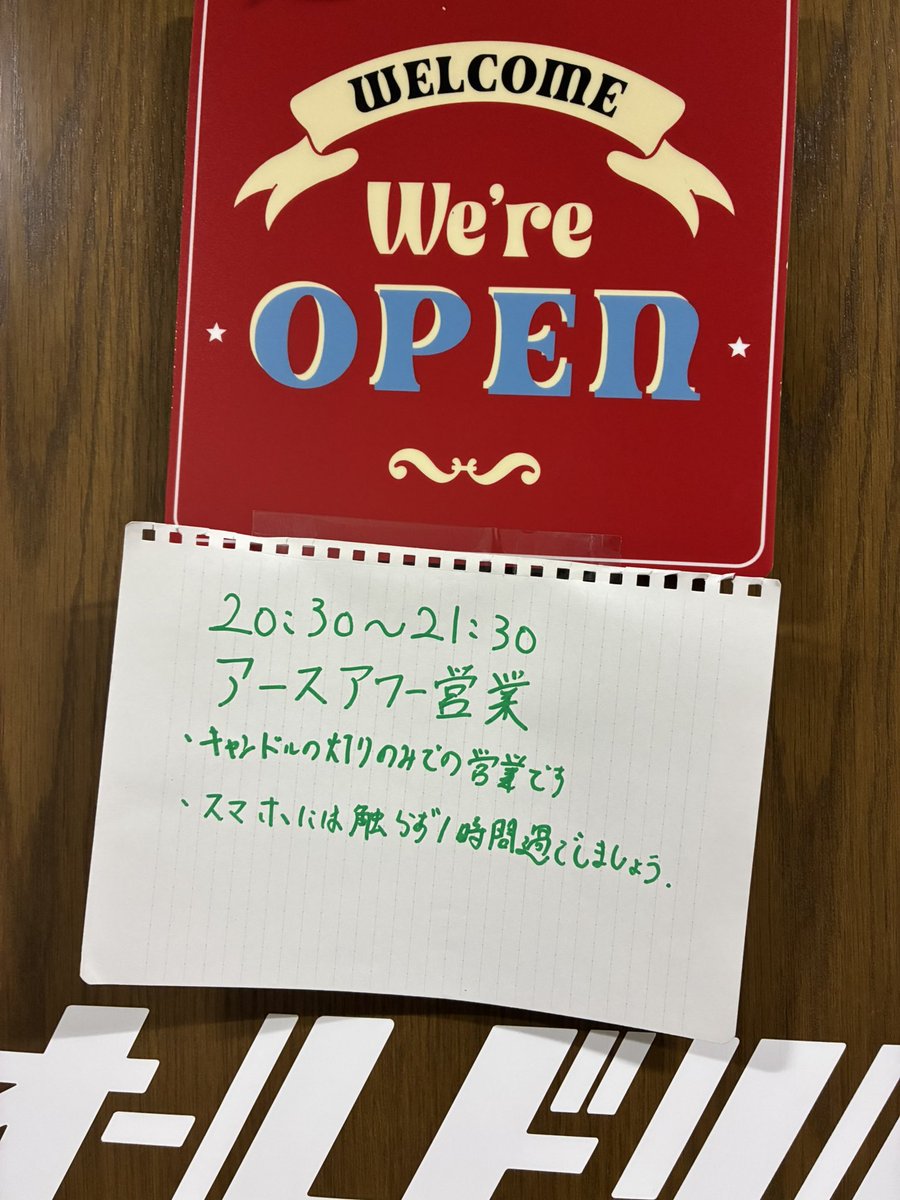 WELCOME
We're
OPEN
20:30〜21:30
アースアワー営業
・キャンドルの灯りのみでの営業です
・スマホには触らず1時間過ごしましょう.
オールド